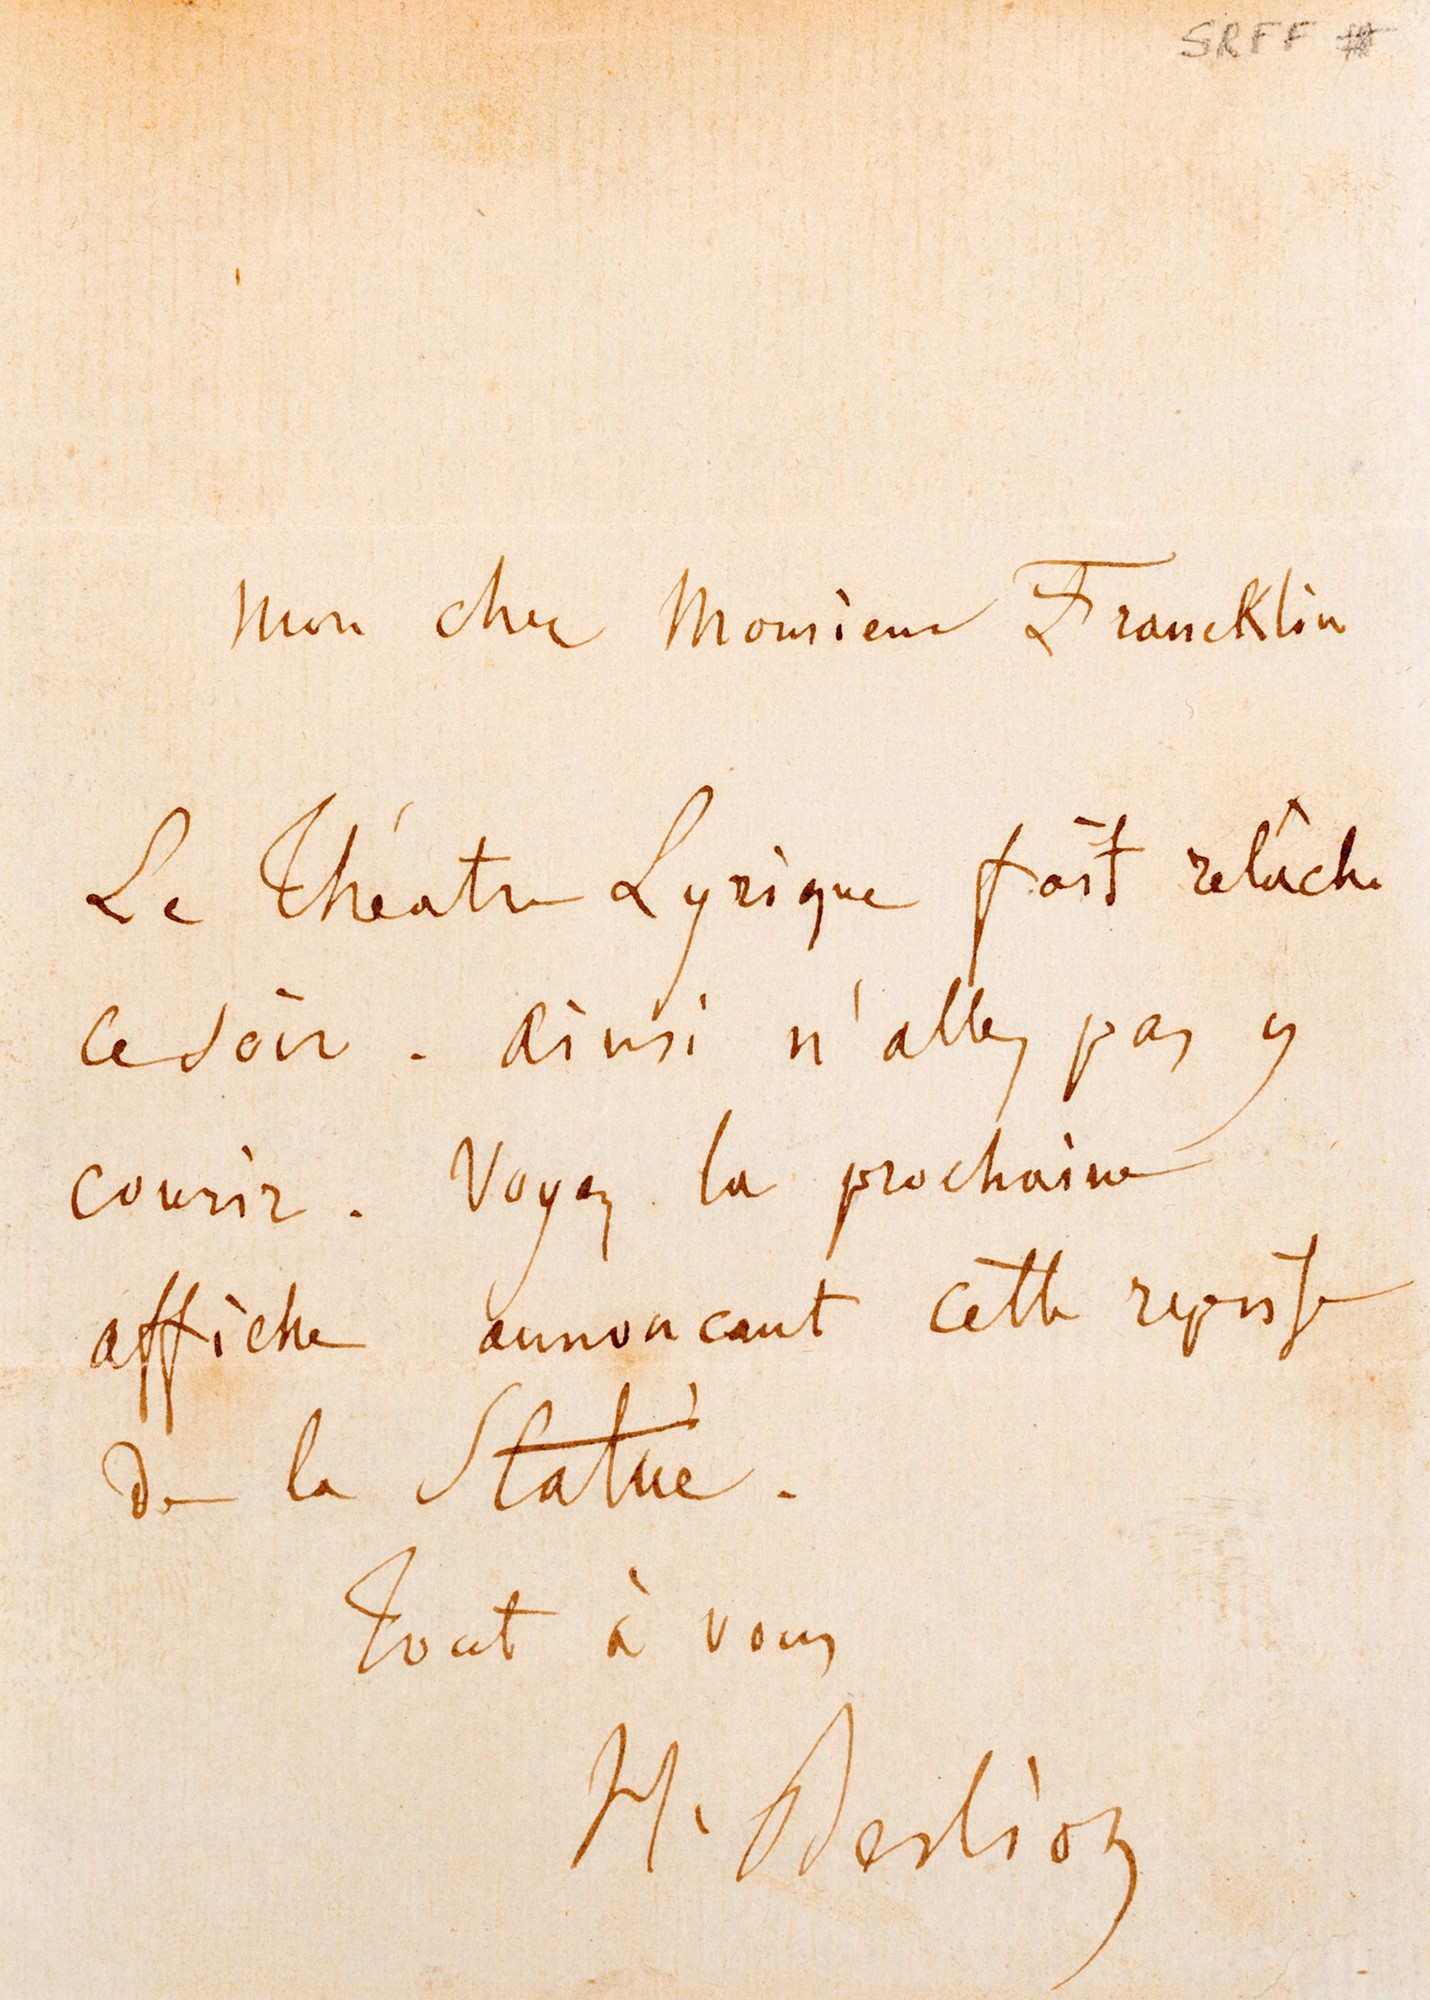 SRFF
Mon cher Monsieur Francklin
Le Théatre Lyrique fait relâche
ce soir. Ainsi n'allez pas y
courir. Voyez la prochaine
affiche annoncant cette reprise
de la Statue.
Tout à vous
H. Berlioz